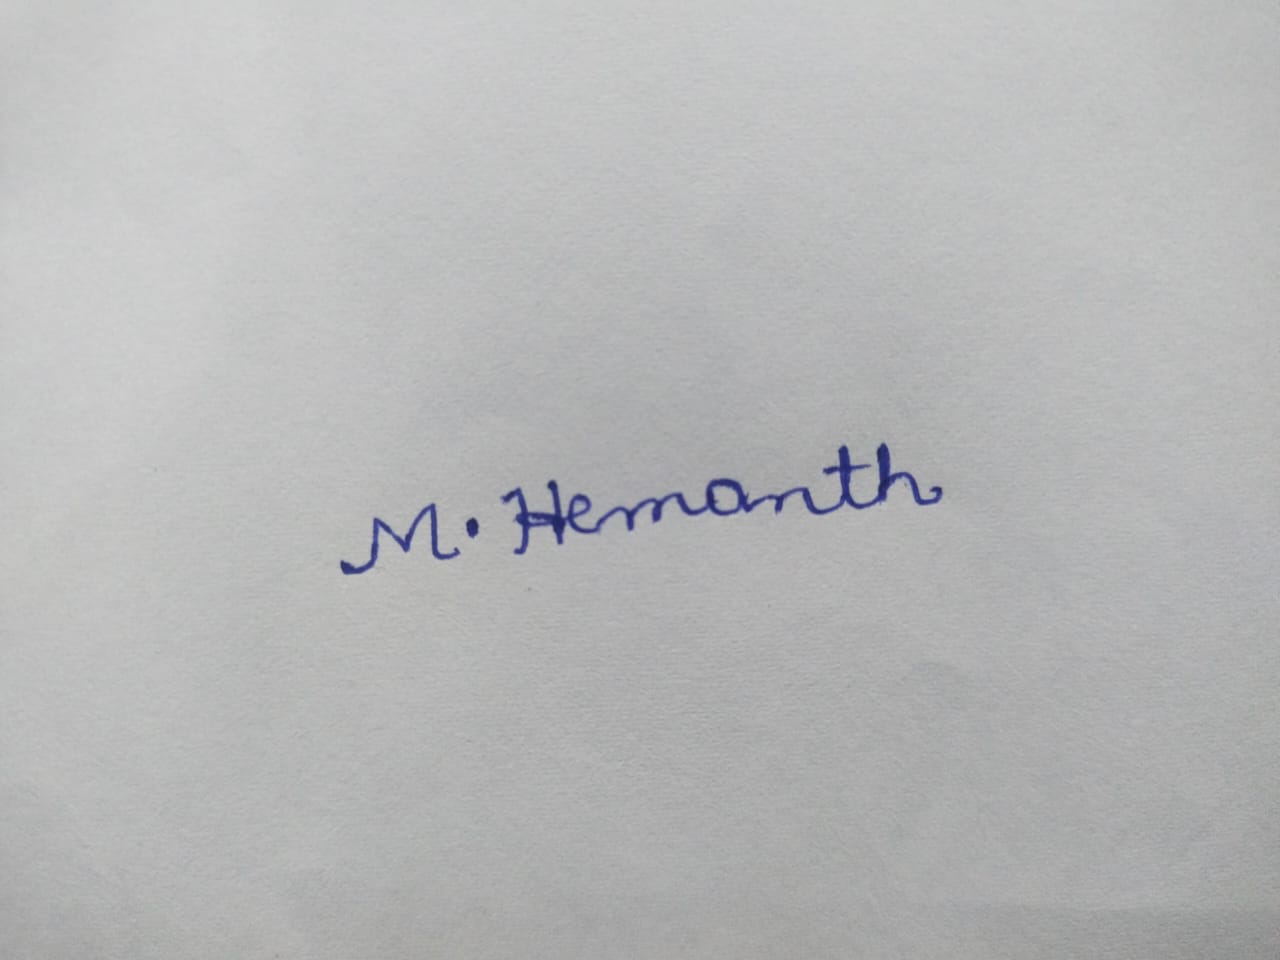 M. Hemanth